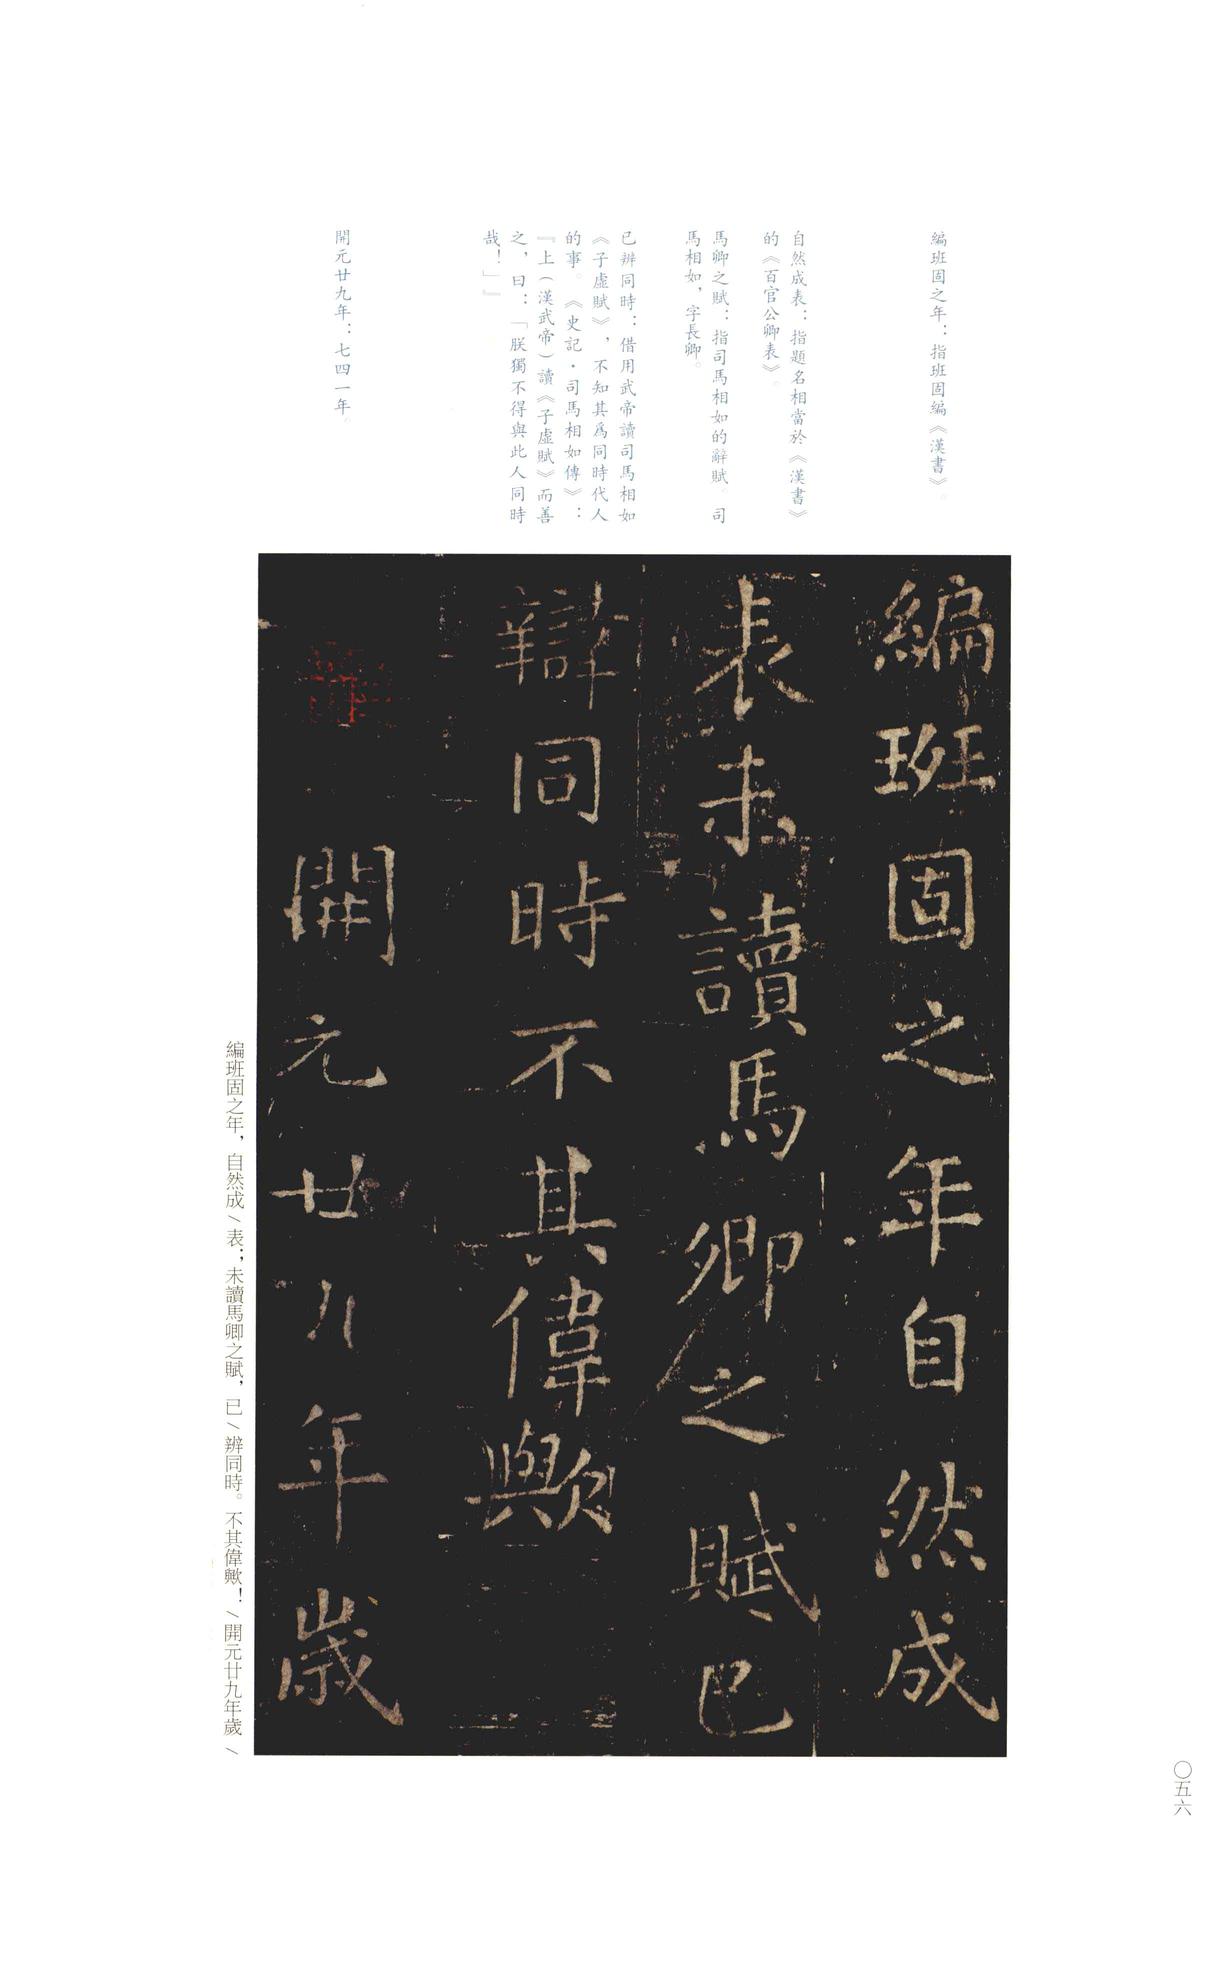 編班固之年：指班固編《漢書》。
自然成表：指題名相當於《漢書》
的《百官公卿表》。
馬卿之賦：指司馬相如的辭賦。司
馬相如，字長卿。
已辨同時：借用武帝讀司馬相如
《子虛賦》，不知其爲同時代人
的事。《史記·司馬相如傳》：
『上（漢武帝）讀《子虛賦》而善
之，曰：「朕獨不得與此人同時
哉！」』
開元廿九年：七四一年。
編班固之年自然成
表未讀馬卿之賦已
辯同時不其偉歟
開元廿九年歲
編班固之年，自然成／表；未讀馬卿之賦，已／辨同時。不其偉歟！／開元廿九年歲／
〇五六